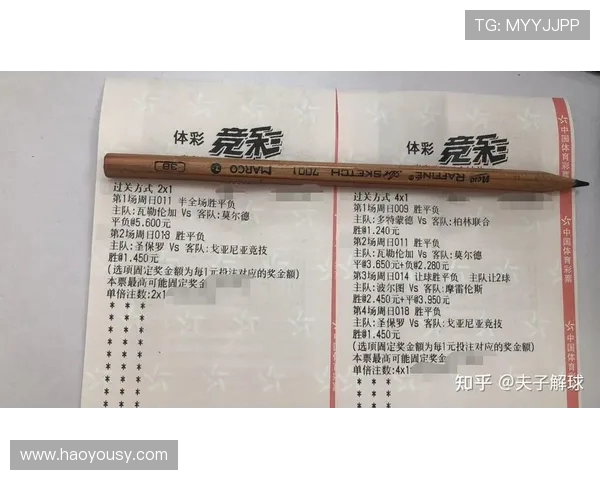 TG: MYYJJPP
体彩 竞彩
3B MARCO SKETCH 7001 RAFFINE
过关方式 2x1
第1场周日011 半全场胜平负
主队:瓦勒伦加 Vs 客队:莫尔德
平负@5.600元
第2场周日018 胜平负
主队:圣保罗 Vs 客队:戈亚尼亚竞技
胜@1.450元
(选项固定奖金额为每1元投注对应的奖金额)
本票最高可能固定奖金
单倍注数:2x1
体彩 竞彩
过关方式 4x1
第1场周日009 胜平负
主队:多特蒙德 Vs 客队:柏林联合
胜@1.240元
第2场周日011 胜平负
主队:瓦勒伦加 Vs 客队:莫尔德
平@3.650元+负@2.280元
第3场周日014 让球胜平负 主队让2球
主队:波尔图 Vs 客队:摩雷伦斯
胜@2.450元+平@3.950元
第4场周日018 胜平负
主队:圣保罗 Vs 客队:戈亚尼亚竞技
胜@1.450元
(选项固定奖金额为每1元投注对应的奖金额)
本票最高可能固定奖金
单倍注数:4x1
中国体育彩票
中国体育彩票
中国体育彩票
知乎 @夫子解球
www.haoyousy.com